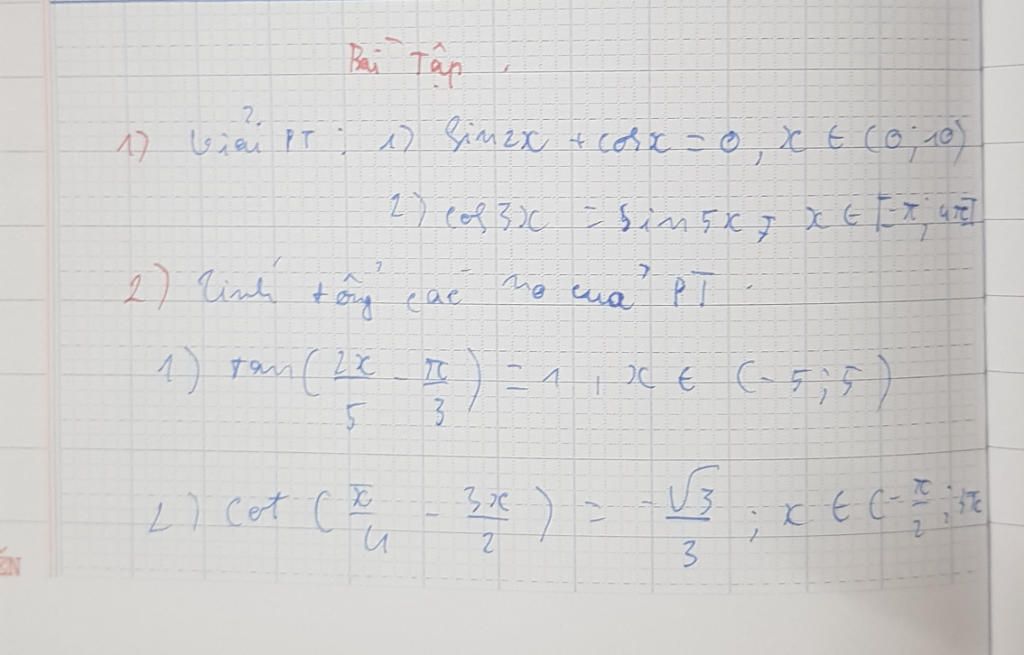 Bài Tập.
1) Giải PT: 1) sin2x + cosx = 0, x ∈ (0;10)
2) cos3x = sin5x, x ∈ [-π; 4π]
2) Tính tổng các no của PT.
1) tan(2x/5 - π/3) = 1, x ∈ (-5;5)
2) cot(π/4 - 3x/2) = -√3/3; x ∈ (-π/2;